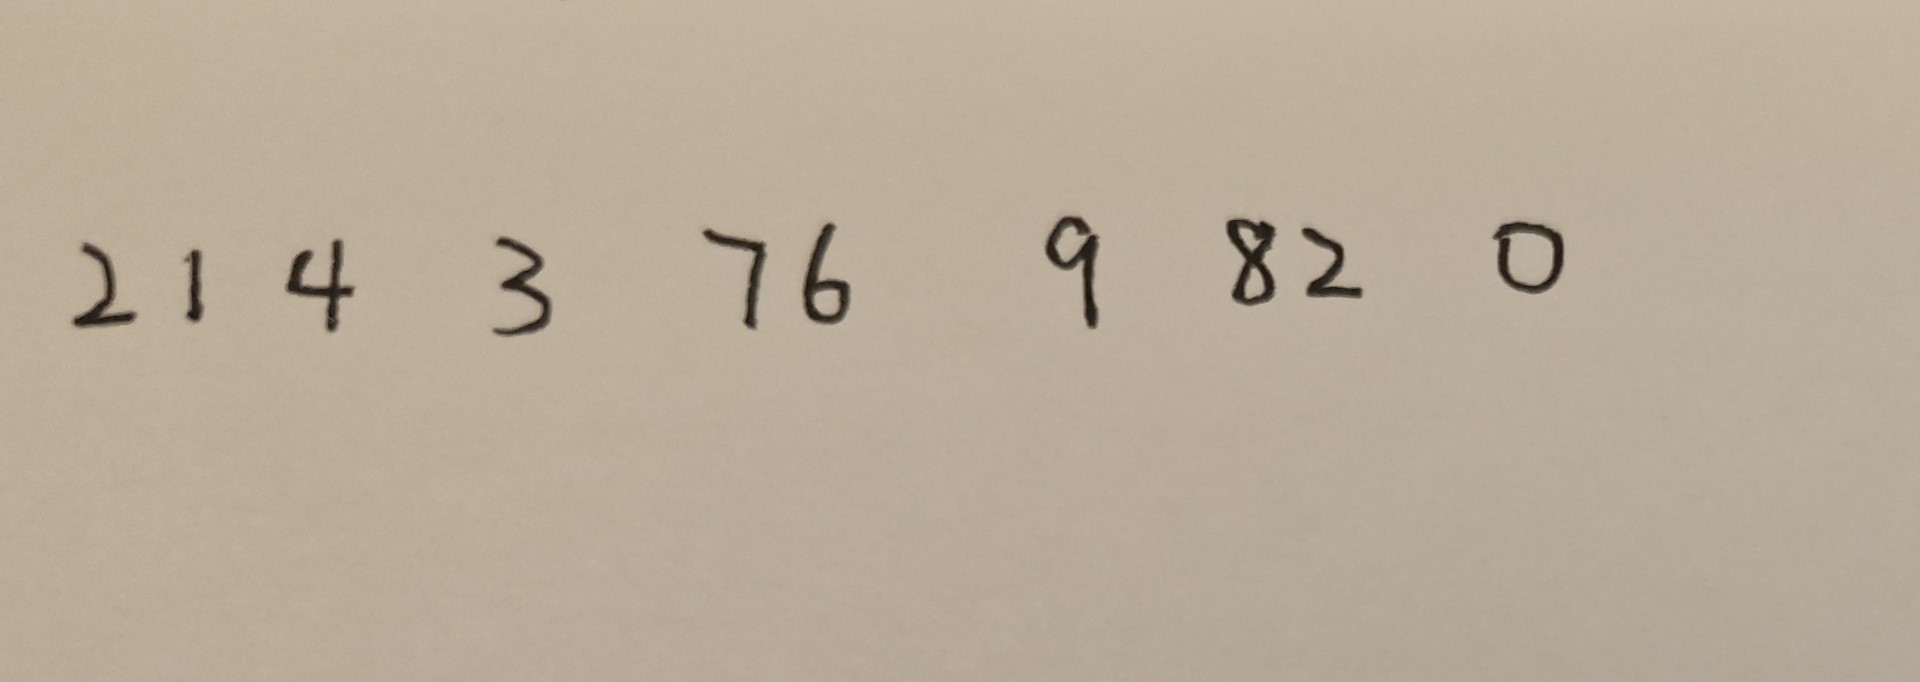 214 3 76 9 82 0